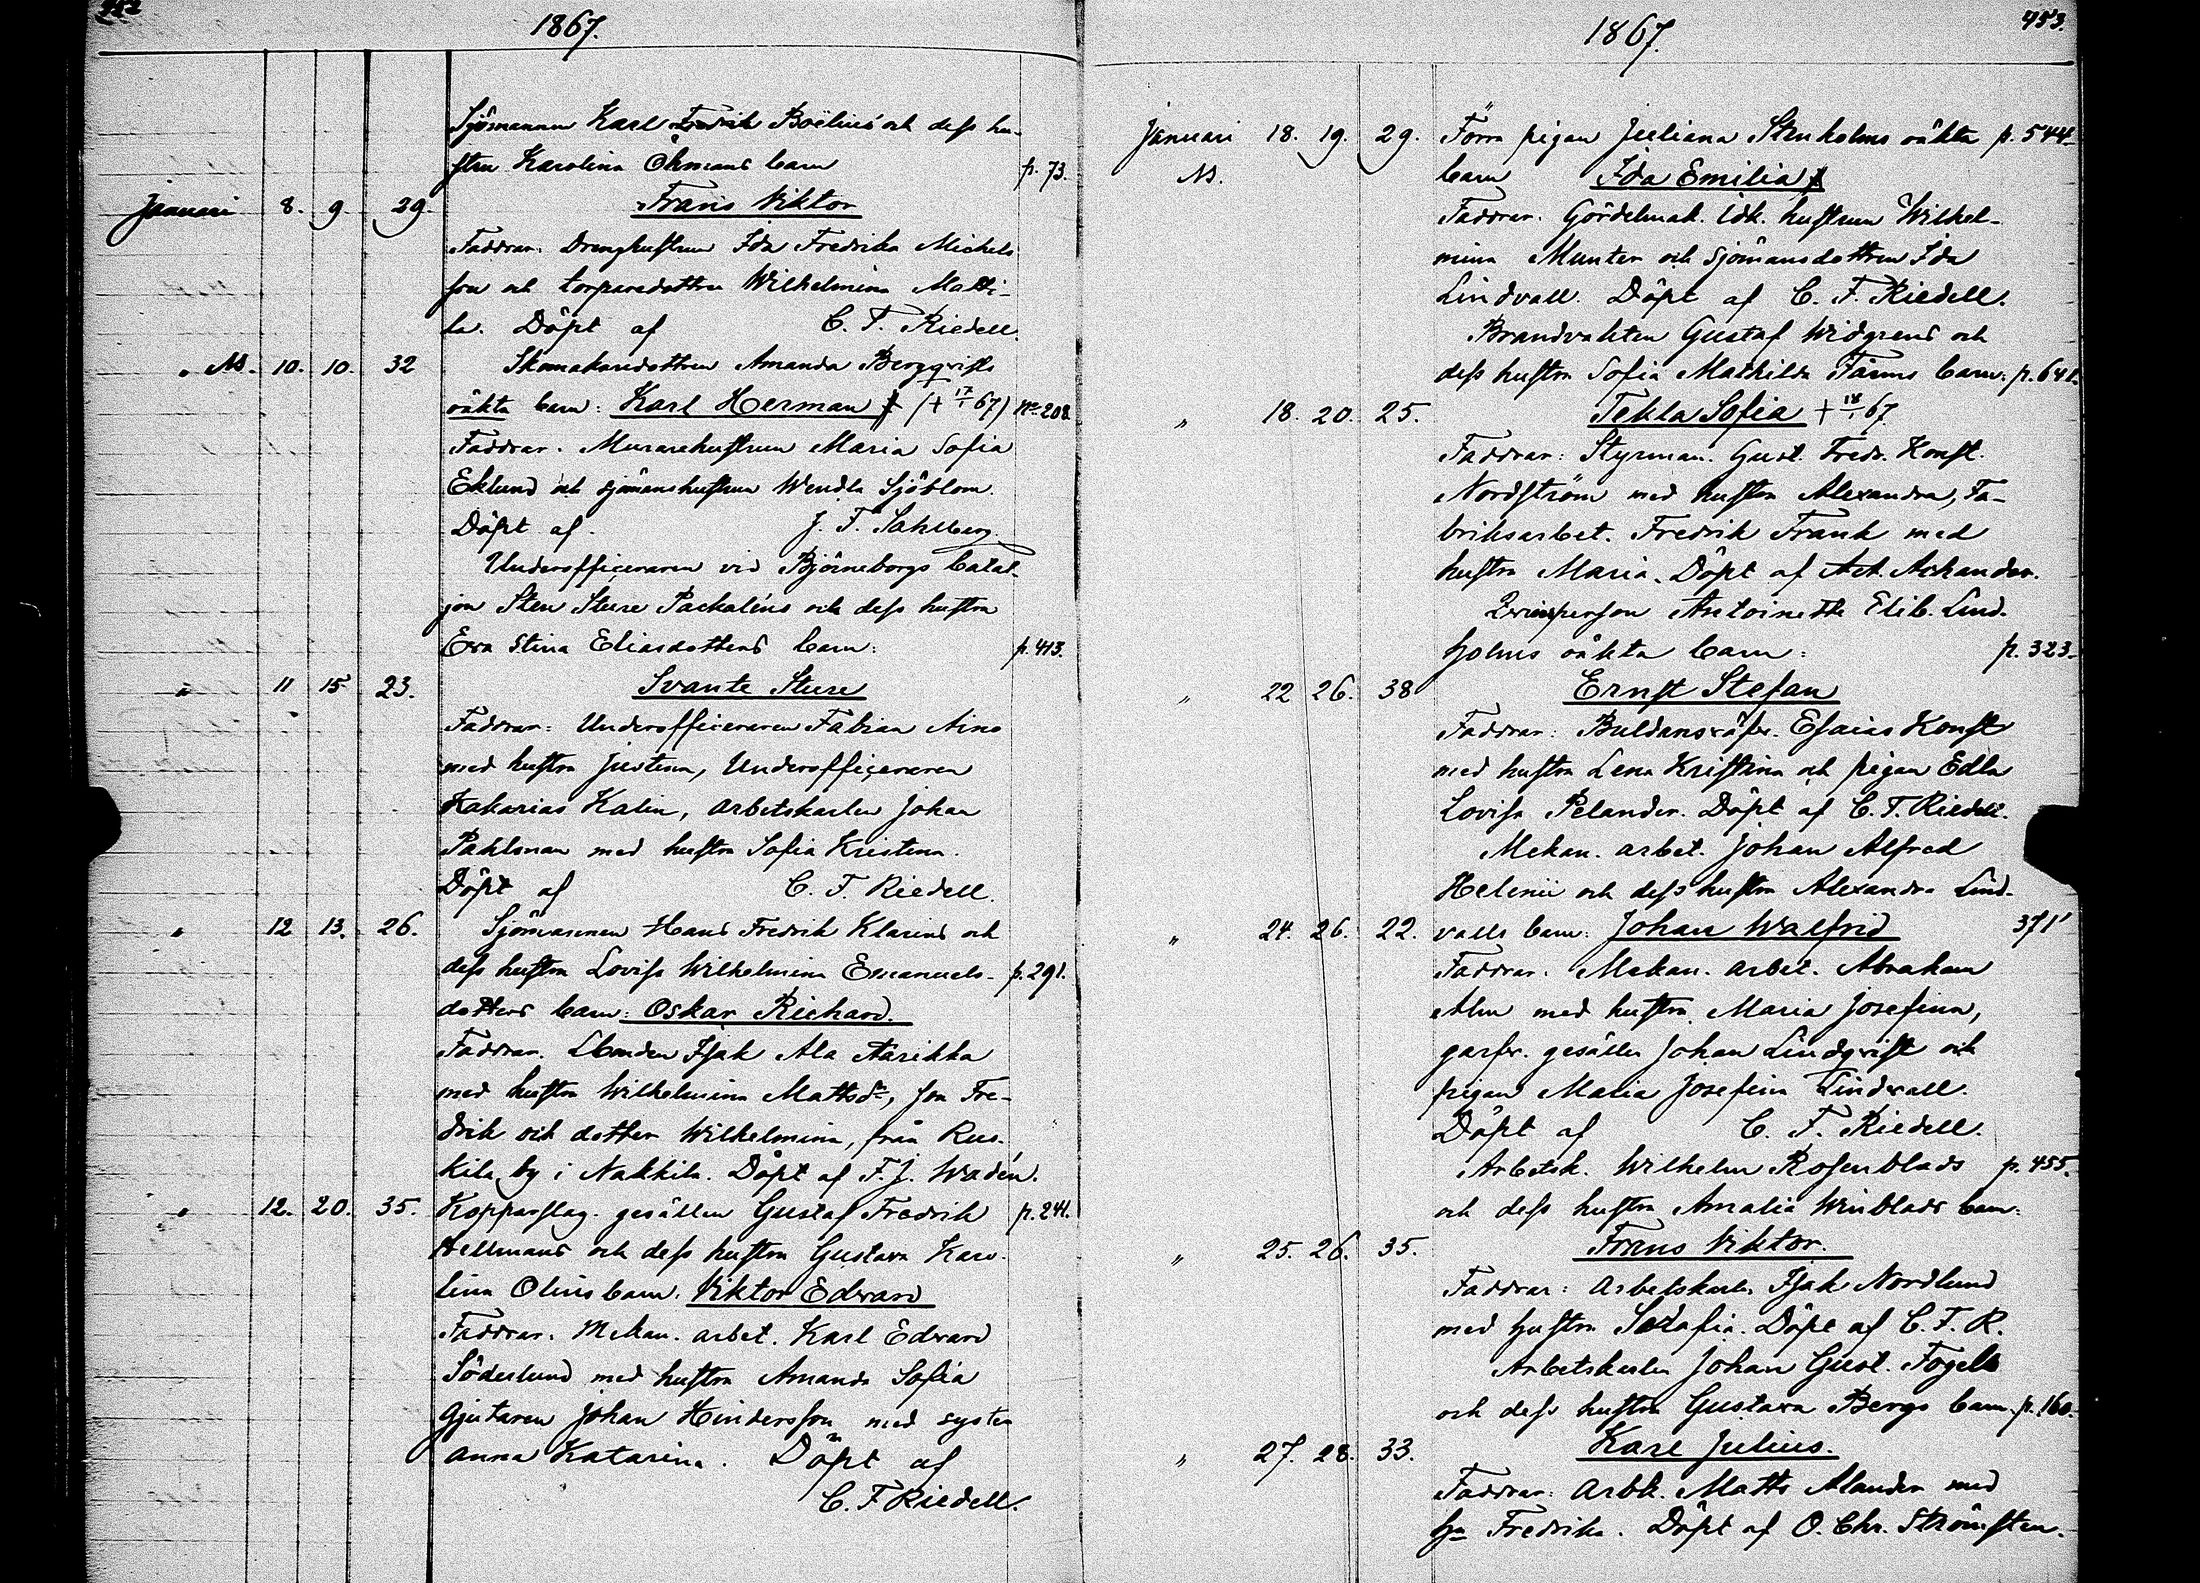 452
1867.
Sjömannen Karl Fredrik Boëlius och dess hu-
stru Karolina Öhmans barn p. 73.
Januari 8. 9. 29. Frans Viktor
Faddrar: Drenghustrun Ida Fredrika Michels
son och torparedottren Wilhelmina Matti-
la. Döpt af C. F. Riedell.
" Ns. 10. 10. 32 Skomakaredottren Amanda Bergqvists
oäkta barn: Karl Herman † (+ 17/1 67) No 208.
Faddrar. Murarehustrun Maria Sofia
Eklund och sjömanshustrun Wendla Sjöblom.
Döpt af. J. F. Sahlberg.
Underofficeraren vid Björneborgs batal-
jon Sten Sture Packaléns och dess hustru
Eva Stina Eliasdotters barn: p. 413.
" 11 15 23. Svante Sture
Faddrar: Underofficeraren Fabian Aino
med hustru Justina, Underofficeraren
Zakarias Kalin, arbetskarlen Johan
Pahlman med hustru Sofia Kristina.
Döpt af C. F. Riedell.
" 12 13. 26. Sjömannen Hans Fredrik Klarins och
dess hustru Lovisa Wilhelmina Emanuels- p. 291.
dotters barn: Oskar Richard.
Faddrar. Lbonden Isak Ala Äärikka
med hustru Wilhelmina Mattsdr, son Fre-
drik och dotter Wilhelmina, från Rus-
kila by i Nakkila. Döpt af F. J. Wadén.
" 12. 20. 35. Kopparslag. gesällen Gustaf Fredrik p. 241.
Hellmans och dess hustru Gustava Karo-
lina Olins barn. Viktor Edvard
Faddrar: Mekan. arbet. Karl Edvard
Söderlund med hustru Amanda Sofia
Gjutaren Johan Hindersson med syster
Anna Katarina. Döpt af
C. F. Riedell.
453.
1867.
Januari 18. 19. 29. Förra pigan Juliana Stenholms oäkta p. 544.
Ns. barn Ida Emilia †
Faddrar: Gördelmak. idk. hustrun Wilhel-
mina Munter och Sjömansdottren Ida
Lindvall. Döpt af C. F. Riedell.
Brandvakten Gustaf Widgrens och
dess hustru Sofia Mathilda Färms barn: p. 641.
" 18. 20. 25. Tekla Sofia + 18/1 67
Faddrar: Styrman. Gust. Fredr. Konst.
Nordström med hustru Alexandra, Fa-
briksarbet. Fredrik Frank med
hustru Maria. Döpt af Act. Ackander.
Qvinsperson Antoinette Elib. Lind-
holms oäkta barn: p. 323.
" 22 26. 38 Ernst Stefan
Faddrar: Esaias Konst
med hustru Lena Kristina och pigan Edla
Lovisa Pelander. Döpt af C. F. Riedell.
Mekan. arbet. Johan Alfred
Helenii och dess hustru Alexandra Lind-
" 24. 26. 22. valls barn: Johan Walfrid 371
Faddrar: Mekan. arbet. Abraham
Alm med hustru Maria Josefina,
garfv. gesällen Johan Lindqvist och
pigan Maria Josefina Lindvall.
Döpt af C. F. Riedell.
Arbetsk. Wilhelm Rosenblads p. 455.
och dess hustru Amalia Winblads barn:
" 25. 26. 35. Frans Viktor.
Faddrar: Arbetskarln Isak Nordlund
med hustru Serafia. Döpt af C. F. R.
Arbetskarlen Johan Gust. Fogels
och dess hustru Gustava Bergs barn. p. 160.
" 27. 28. 33. Karl Julius.
Faddrar: Arbk. Matts Alander med
hu Fredrika. Döpt af O. Chr. Strömsten.